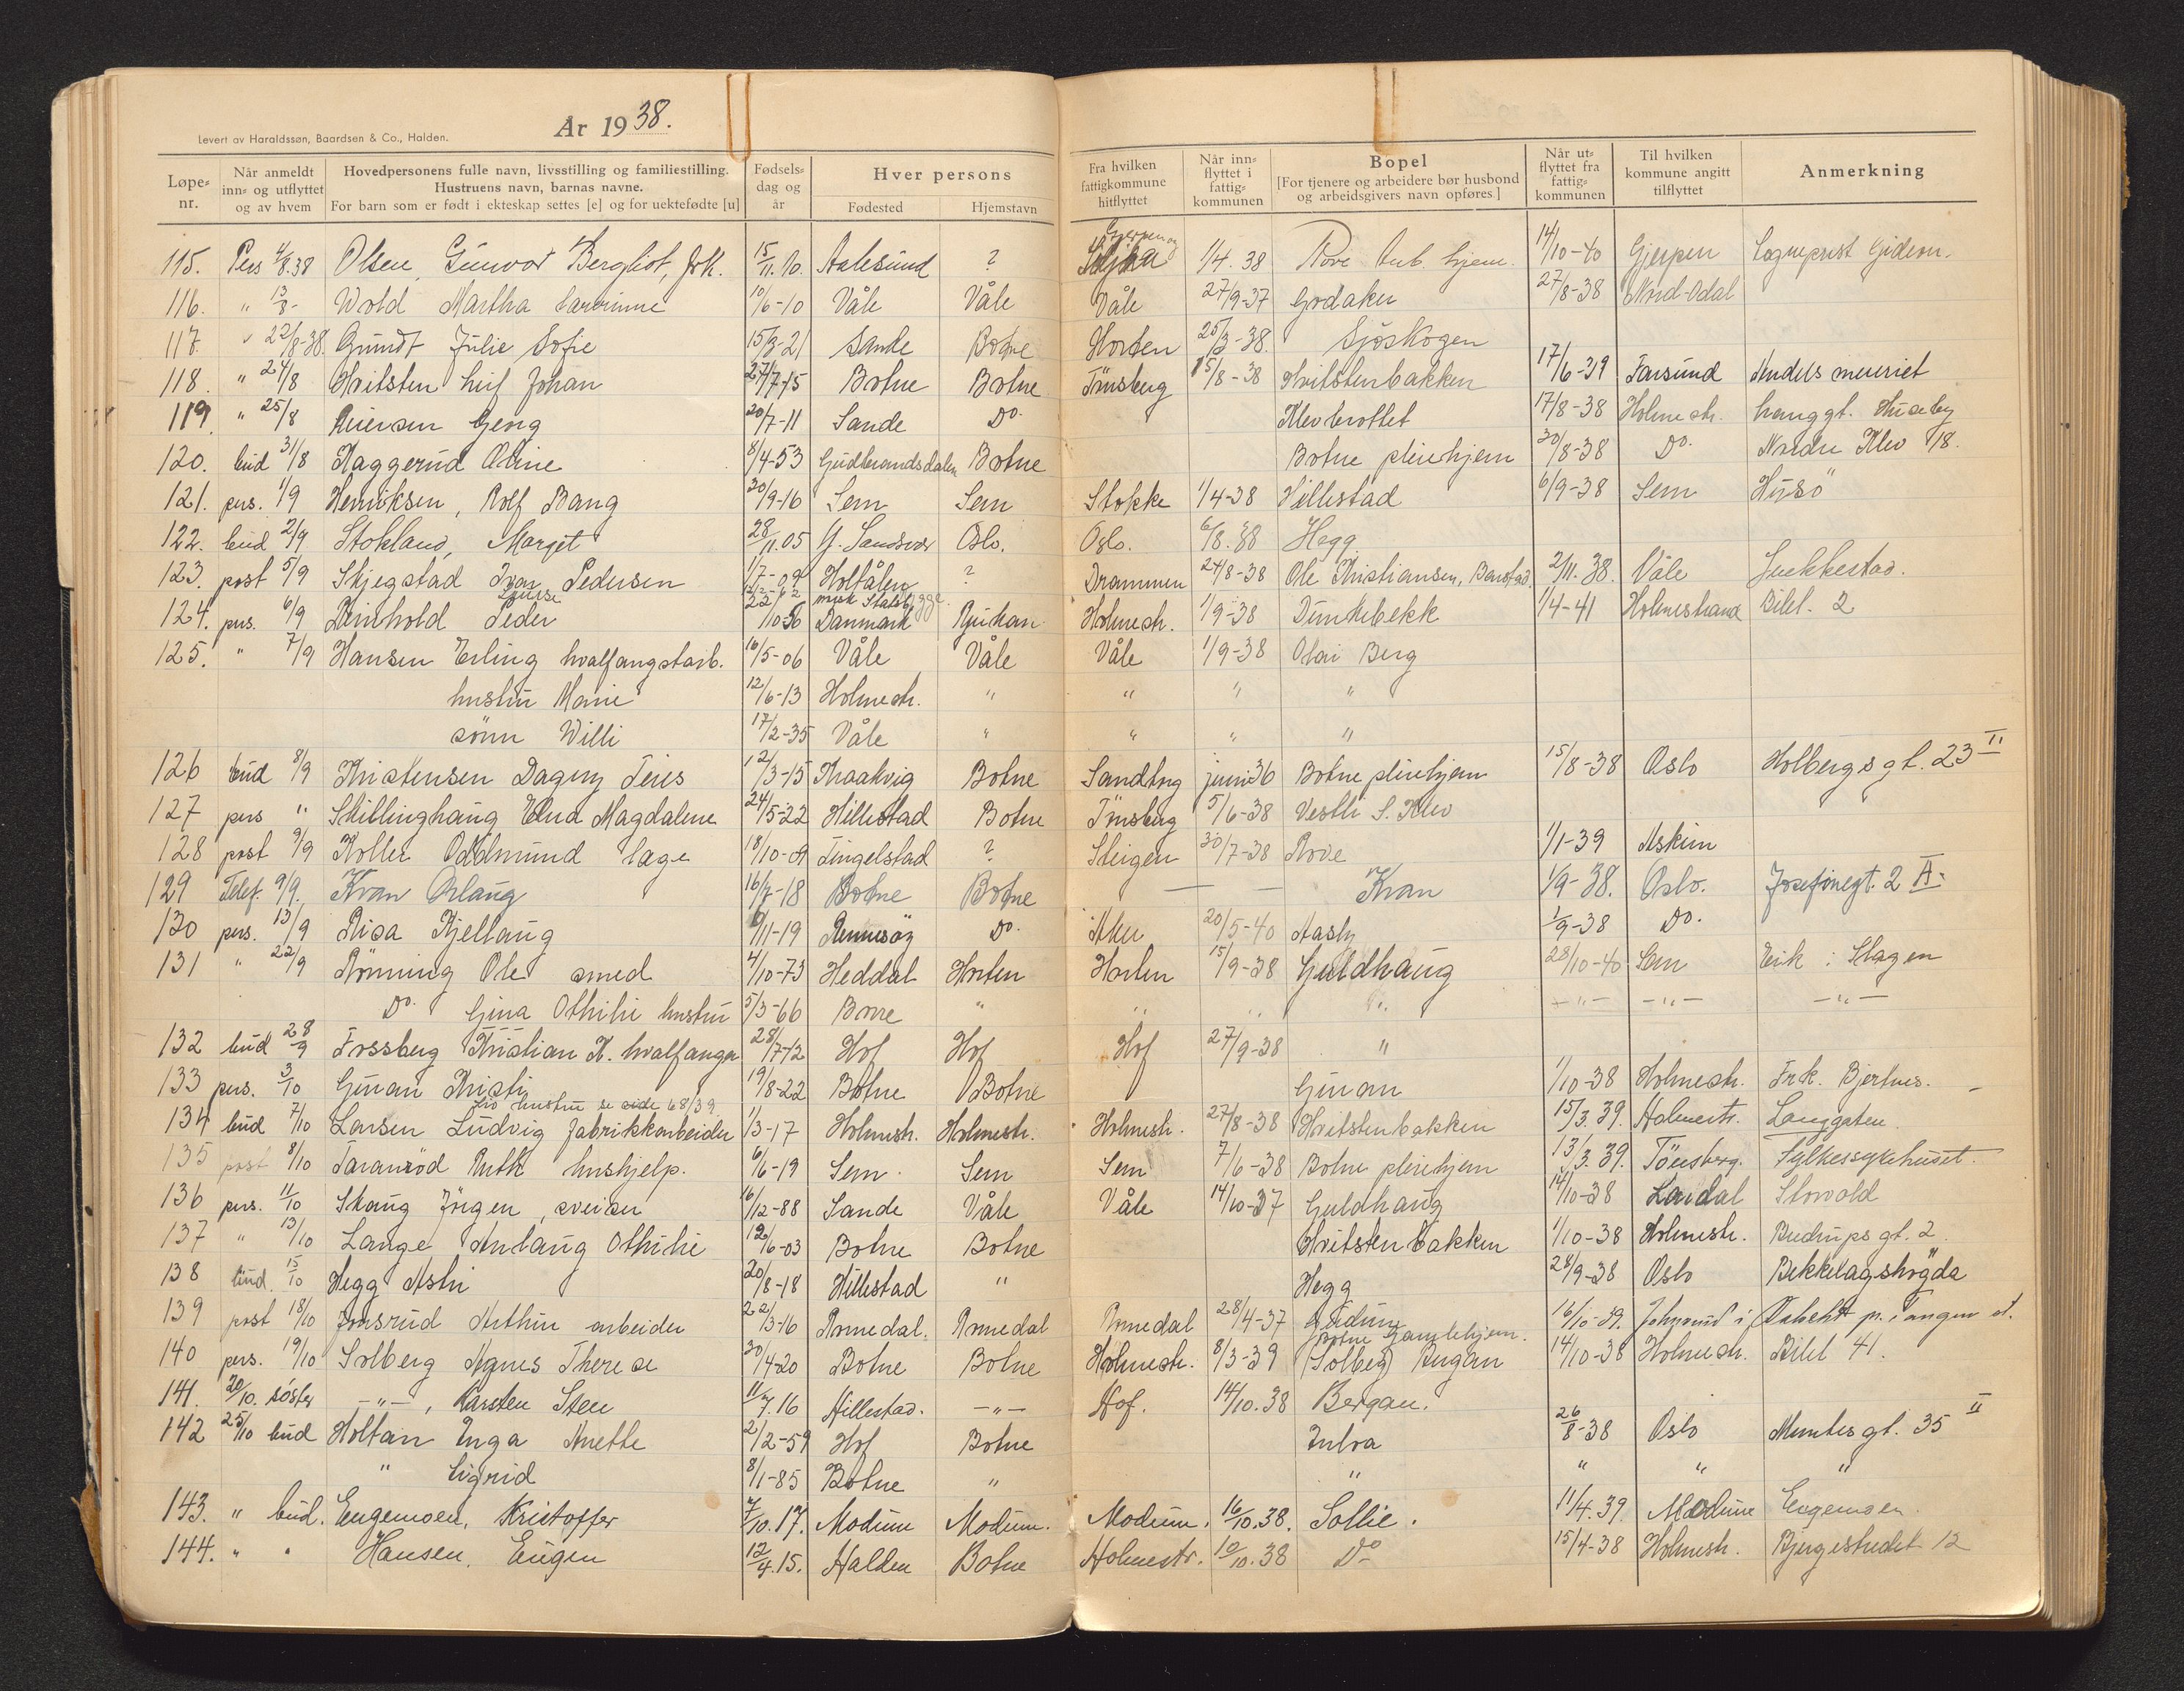 År 1938.
Levert av Haraldssøn, Baardsen & Co., Halden.
Løpe-nr. | Når anmeldt inn- og utflyttet og av hvem | Hovedpersonens fulle navn, livsstilling og familiestilling. Hustruens navn, barnas navne. For barn som er født i ekteskap settes [e] og for uektefødte [u] | Fødsels-dag og år | Hver persons Fødested | Hjemstavn | Fra hvilken fattigkommune hitflyttet | Når inn-flyttet i fattig-kommunen | Bopel [For tjenere og arbeidere bør husbond og arbeidsgivers navn opføres.] | Når ut-flyttet fra fattig-kommunen | Til hvilken kommune angitt tilflyttet | Anmerkning
115. Pers 4/8.38 Olsen, Gunvor Bergliot, frk. 15/11.10. Aalesund ? 1/4.38 Rove hjem. 14/10-40 Gjerpen Sogneprest Gideon.
116. " 13/8- Wold Martha 10/6-10 Våle Våle Våle 27/9-37 Grdaker 27/8-38 Nord-Odal
117. " 22/8-38. Gundt Julie Sofie 15/3-21 Sande Botne Horten 25/3-38. Sjøskogen
118. " 24/8 Hvitsten Leif Johan 27/7-15 Botne Botne Tønsberg 15/8-38 Hvitstenbakken 17/6-39 Farsund meieriet
119. " 25/8 Reiersen Georg 20/7-11 Sande Do. Klevbrottet 17/8-38 Holmestr. Langgt. Huseby
120. bud 31/8 Haggerud Oline 8/4-53 Gudbrandsdalen Botne Botne pleiehjem 30/8-38 Do. Nedre Klev 18.
121. pers. 1/9 Henriksen, Rolf Bang 30/9-16 Sem Sem Stokke 1/4-38 Hillestad 6/9-38 Sem Husö
122. bud 2/9 Stokland, Marget 28/11.05 Y. Sandsvær Oslo. Oslo. 6/8.38 Hegg
123. post 5/9 Skjegstad Ivar Pedersen 1/7-09 Holtålen ? Drammen 24/8-38 Ole Kristiansen, Barstad. 2/11.38. Våle Jukkestad.
124. pers. 6/9 Reinhold Peder Danmark Rjukan Holmestr. 1/9-38 Dunkebekk 1/4-41 Holmestrand Bilel. 2
125. " 7/9 Hansen Erling hvalfangstarb. 16/5-06 Våle Våle Våle 1/9-38 Olai Berg
hustru Marie 12/6-13 Holmestr. " " " "
sønn Willi 17/2-35 Våle " " " "
126 bud 8/9 Kristensen Dagny Teies 12/3-15 Kraakvig Botne Sandbrg juni 36 Botne pleiehjem 15/8-38 Oslo Holbergs gt. 23 II
127 pers " Skillinghaug Elna Magdalene 24/5-22 Hillestad Botne Tønsberg 5/6-38 Vestli S. Klev
128 post 9/9 Koller Oddmund lage 18/10-09 Tingelstad ? Steigen 30/7-38 Rove 1/1-39 Askim
129 Telef. 9/9. Kvan Aslaug 16/7-18 Botne Botne — — Kvan 1/9-38. Oslo. Josefinegt. 2 A.
130 pers. 13/9 Risa Kjellaug 6/11-19 Rennesøy Do. Aker 20/5-40 Aasly 1/9-38 Do.
131 " 22/9 Rönning Ole smed 4/10-73 Heddal Horten Horten 15/9-38 Guldhaug 28/10-40 Sem Eik i Slagen
Do. Gina Othilie hustru 5/3-66 Borre " " " " -"- -"- -"-
132 bud 28/9 Fossberg Kristian K. hvalfanger 28/7-12 Hof Hof Hof 27/9-38 "
133 pers. 3/10 Guran Kristi 19/8-22 Botne Botne Guran 1/10-38 Holmestr. Frk. Bjertnes.
Liv hustru se side 68/39
134 bud 7/10 Larsen Ludvig fabrikkarbeider 1/3-17 Holmestr. Holmestr. Holmestr. 27/8-38 Hvitstenbakken 15/3.39. Holmestr. Langgaten
135 post 8/10 Taranröd Ruth hushjelp. 6/6-19 Sem. Sem Sem 7/6-38 Botne pleiehjem 13/3.39. Tönsberg. Fylkessykehuset.
136 pers. 11/10 Skaug Jörgen, sveiser 16/12-88 Sande Våle Våle 14/10-37 Guldhaug 14/10-38 Lardal Storvold
137 " 13/10 Lange Anlaug Othilie 12/6-03 Botne Botne Hvitstenbakken 1/10-38 Holmestr. Rudrups gt. 2.
138 bud. 15/10 Hegg Astri 20/8-18 Hillestad " Hegg 28/9-38 Oslo Bekkelagshögda
139 post 18/10 Jonsrud Arthur arbeider 22/3-16 Romedal. Romedal Romedal 28/4-37 16/10-39. i Tangen st.
140 pers. 19/10 Solberg Agnes Therese 30/4-20 Botne Botne Holmestr. 8/3-39 (Solberg) Bergan Botne Gamlehjem. 14/10-38 Holmestr. Bilel 41.
141. 20/10. søster -"-, Karsten Sten 11/7.16 Hillestad. -"- Hof. 14/10.38 Bergan.
142 25/10 bud Holtan Inga Anette 2/2-59 Hof Botne 26/8-38 Oslo Muntes gt. 35 II
" Sigrid 8/1-85 Botne " " " " "
143. " bud. Engemoen, Kristoffer 7/10.17. Modum Modum. Modum. 16/10.38. Sollie. 11/4.39. Modum Engemoen.
144. " " Hansen, Eugen 12/4.15. Halden Botne Holmestr. 10/10.38 Do 15/4-38 Holmestr. Bjergestredet 12